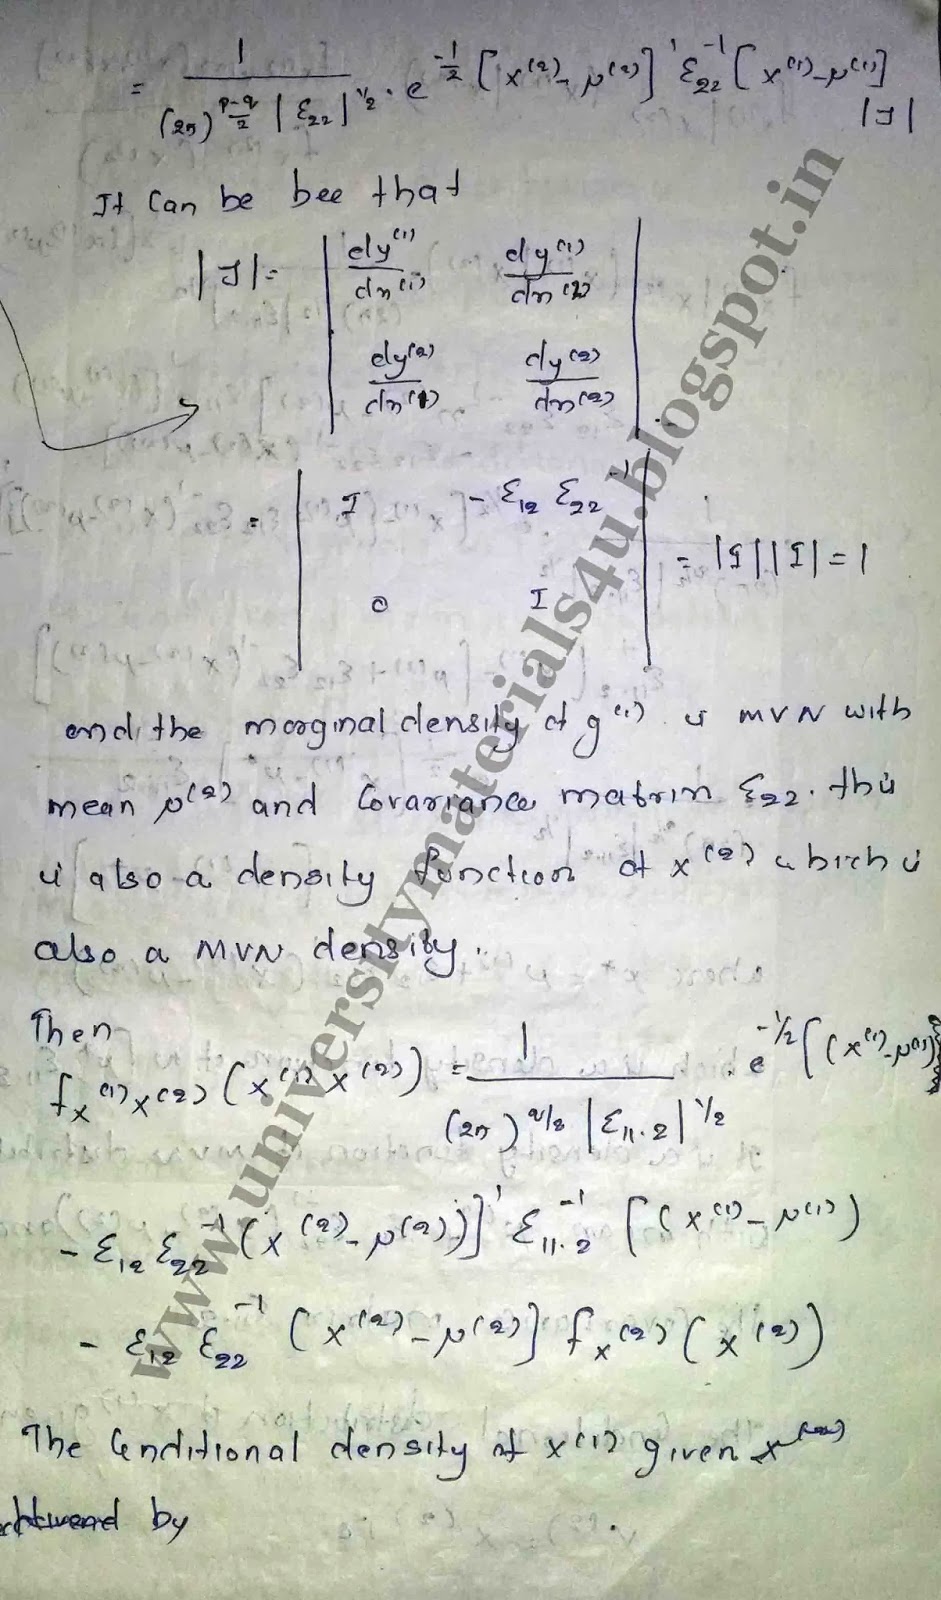 = 1 / (2π)^{p-q/2} |Σ₂₂|^{1/2} . e^{-1/2 [x^{(2)} - μ^{(2)}]' Σ₂₂^{-1} [x^{(1)} - μ^{(1)}]} |J|
It can be bee that
|J| = | dy^{(1)}/dx^{(1)} dy^{(1)}/dx^{(2)} |
| dy^{(2)}/dx^{(1)} dy^{(2)}/dx^{(2)} |
= | I - Σ₁₂ Σ₂₂^{-1} |
| 0 I | = |I| |I| = 1
and the marginal density of y^{(1)} is MVN with
mean μ^{(2)} and Covariance matrix Σ₂₂. this
is also a density function of x^{(2)} which is
also a MVN density.
Then
f_{x^{(1)} x^{(2)}} (x^{(1)} x^{(2)}) = 1 / (2π)^{q/2} |Σ₁₁.₂|^{1/2} . e^{-1/2 [(x^{(1)} - μ^{(1)})
- Σ₁₂ Σ₂₂^{-1} (x^{(2)} - μ^{(2)})]' Σ₁₁.₂^{-1} [(x^{(1)} - μ^{(1)})
- Σ₁₂ Σ₂₂^{-1} (x^{(2)} - μ^{(2)}] f_{x^{(2)}} (x^{(2)})
The Conditional density of x^{(1)} given x^{(2)}
by
www.universitymaterials4u.blogspot.in